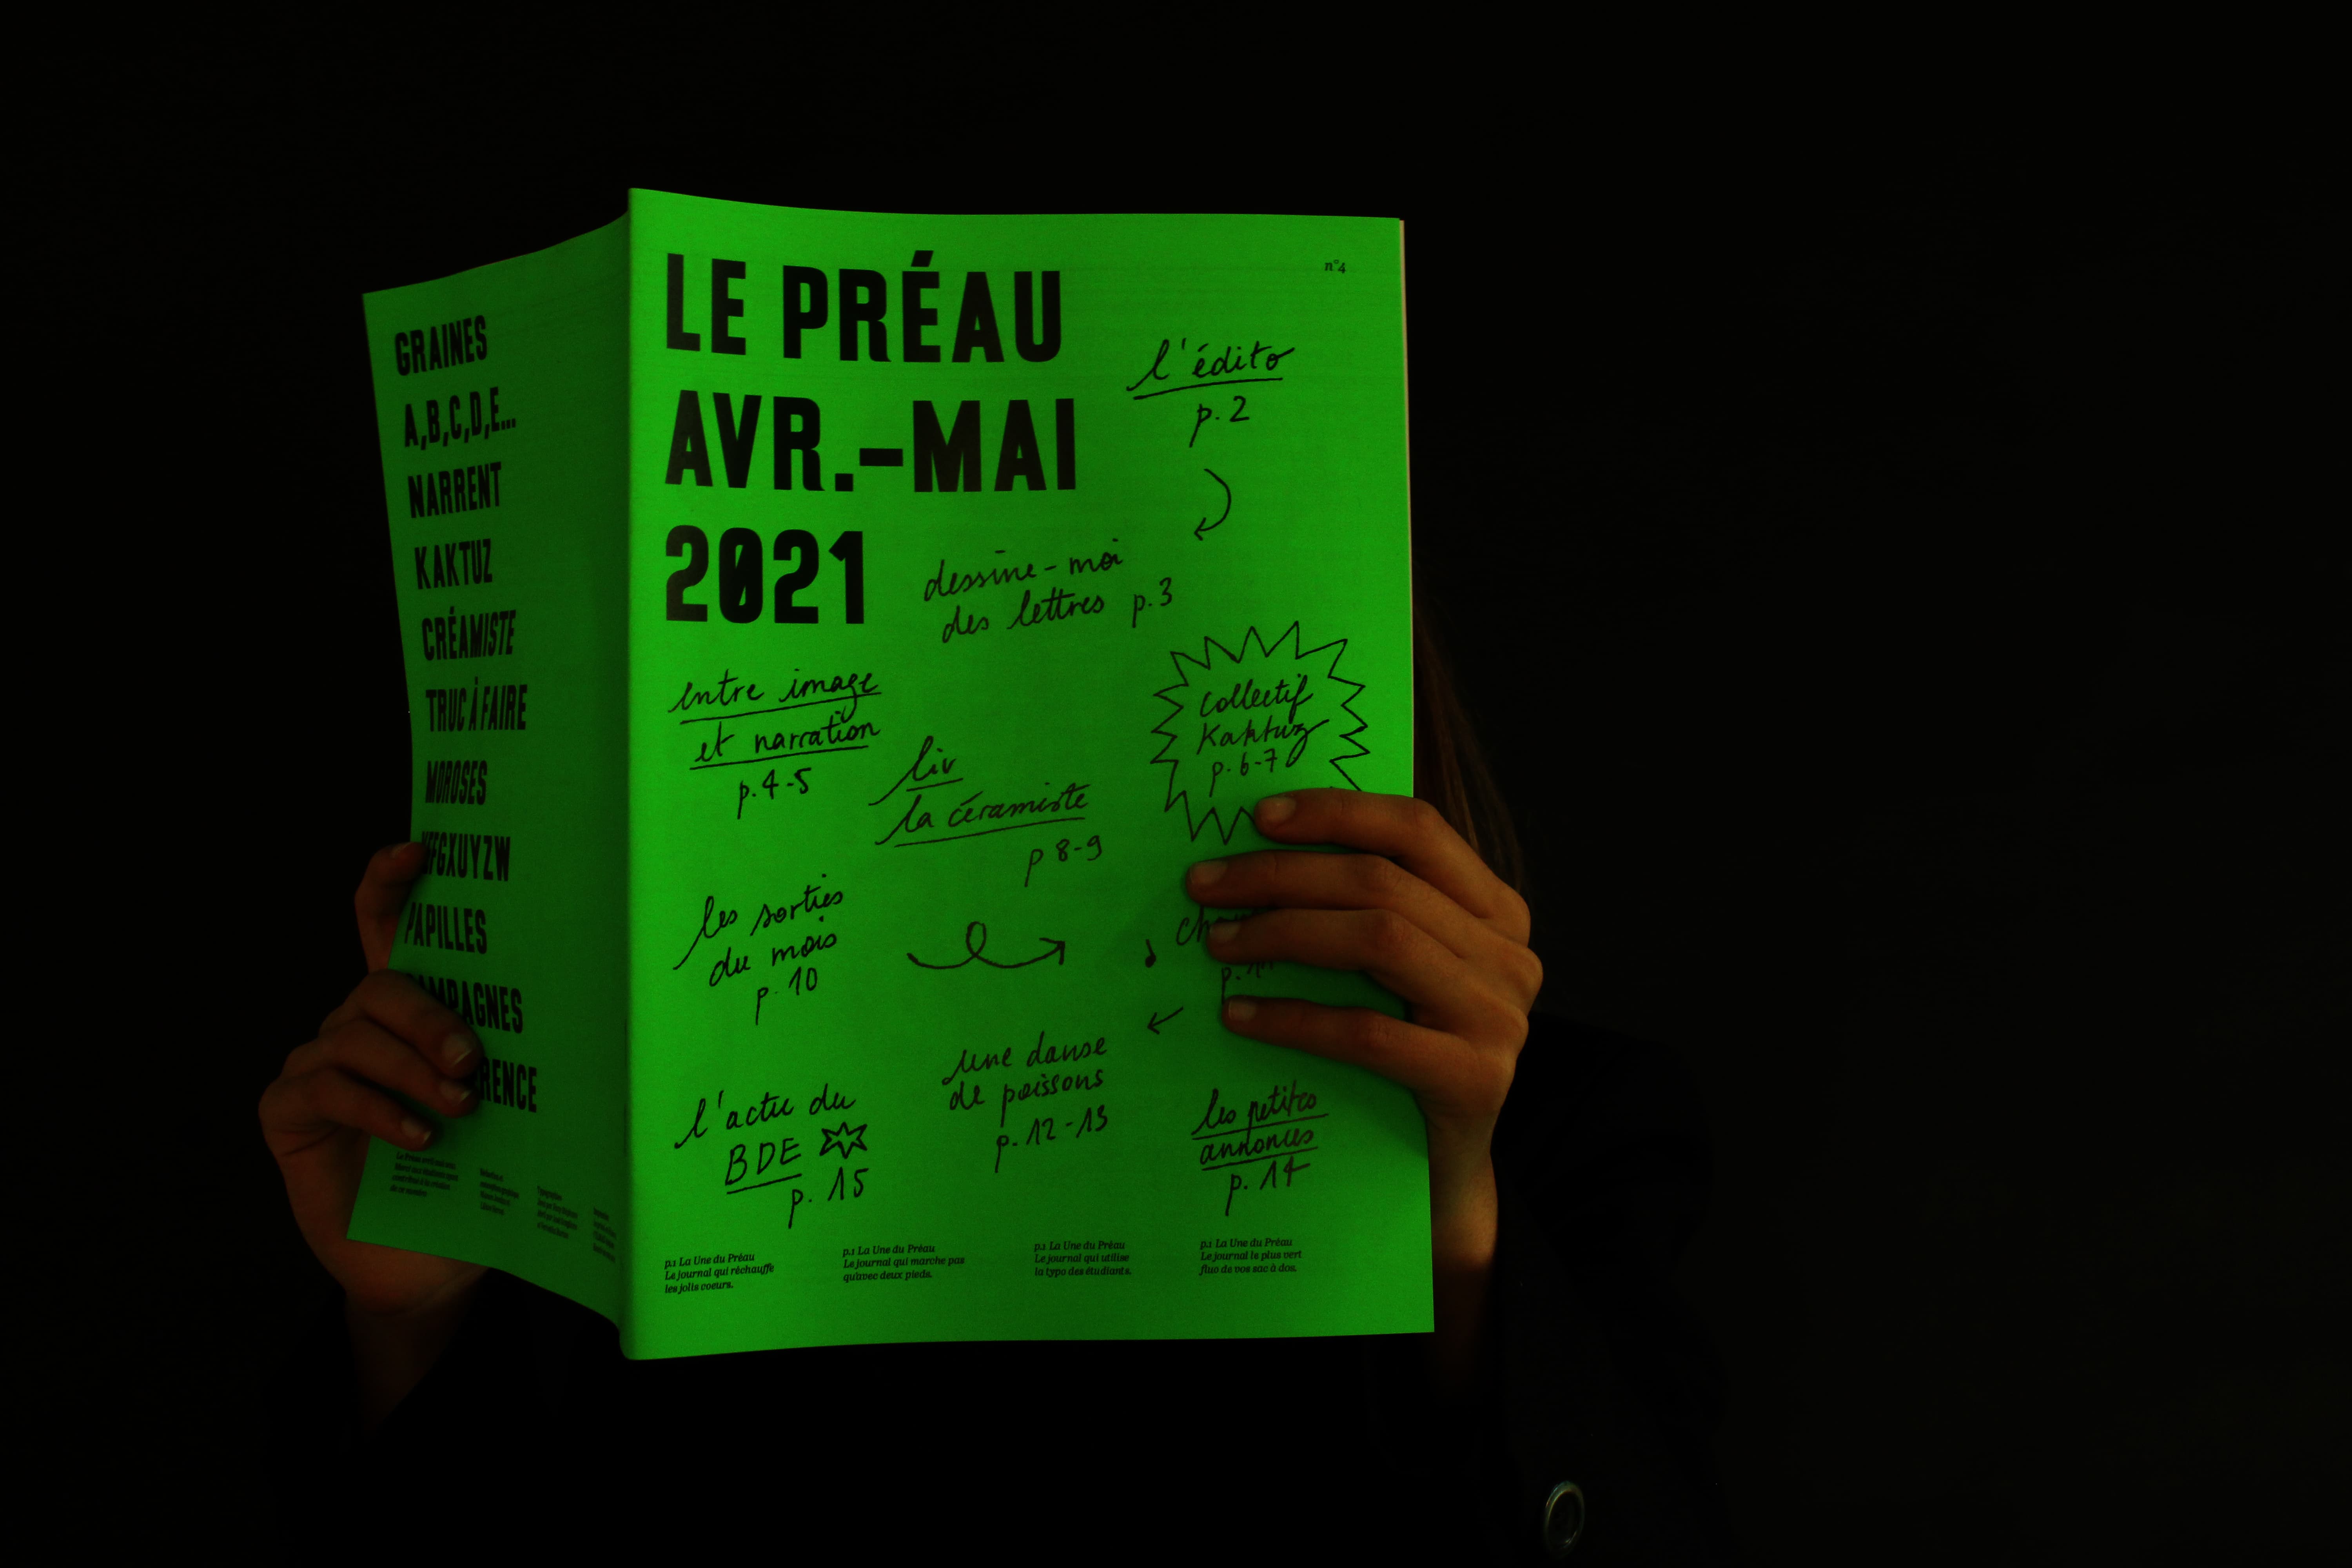 GRAINES
A,B,C,D,E...
NARRENT
KAKTUZ
CRÉAMISTE
TRUC À FAIRE
MOROSES
PAPILLES
LE PRÉAU
AVR.-MAI
2021
n°4
l'édito
p. 2
dessine-moi
des lettres p.3
entre image
et narration
p.4-5
Collectif
Kaktuz
p.6-7
liv
la céramiste
p 8-9
les sorties
du mois
p.10
une danse
de poissons
p.12-13
l'actu du
BDE
p.15
les petites
annonces
p.14
p.1 La Une du Préau
Le journal qui réchauffe
les jolis coeurs.
p.1 La Une du Préau
Le journal qui marche pas
qu'avec deux pieds.
p.1 La Une du Préau
Le journal qui utilise
la typo des étudiants.
p.1 La Une du Préau
Le journal le plus vert
fluo de vos sac à dos.